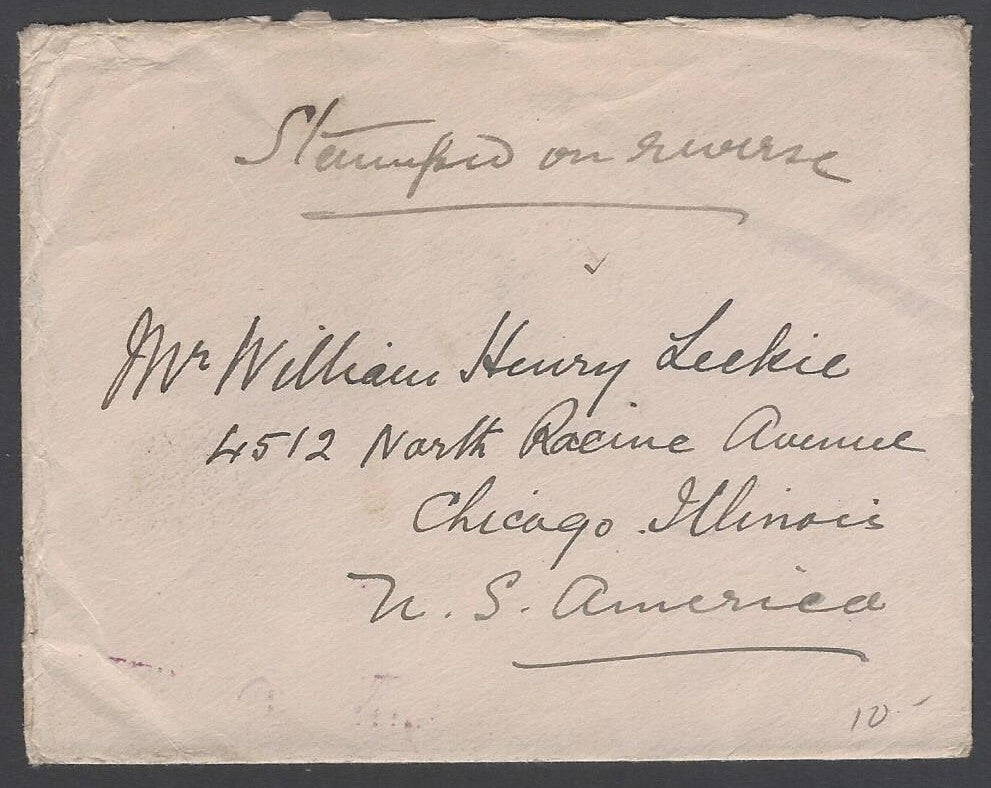 Stamped on reverse
Mr William Henry Leckie
4512 North Racine Avenue
Chicago. Illinois
U. S. America
10